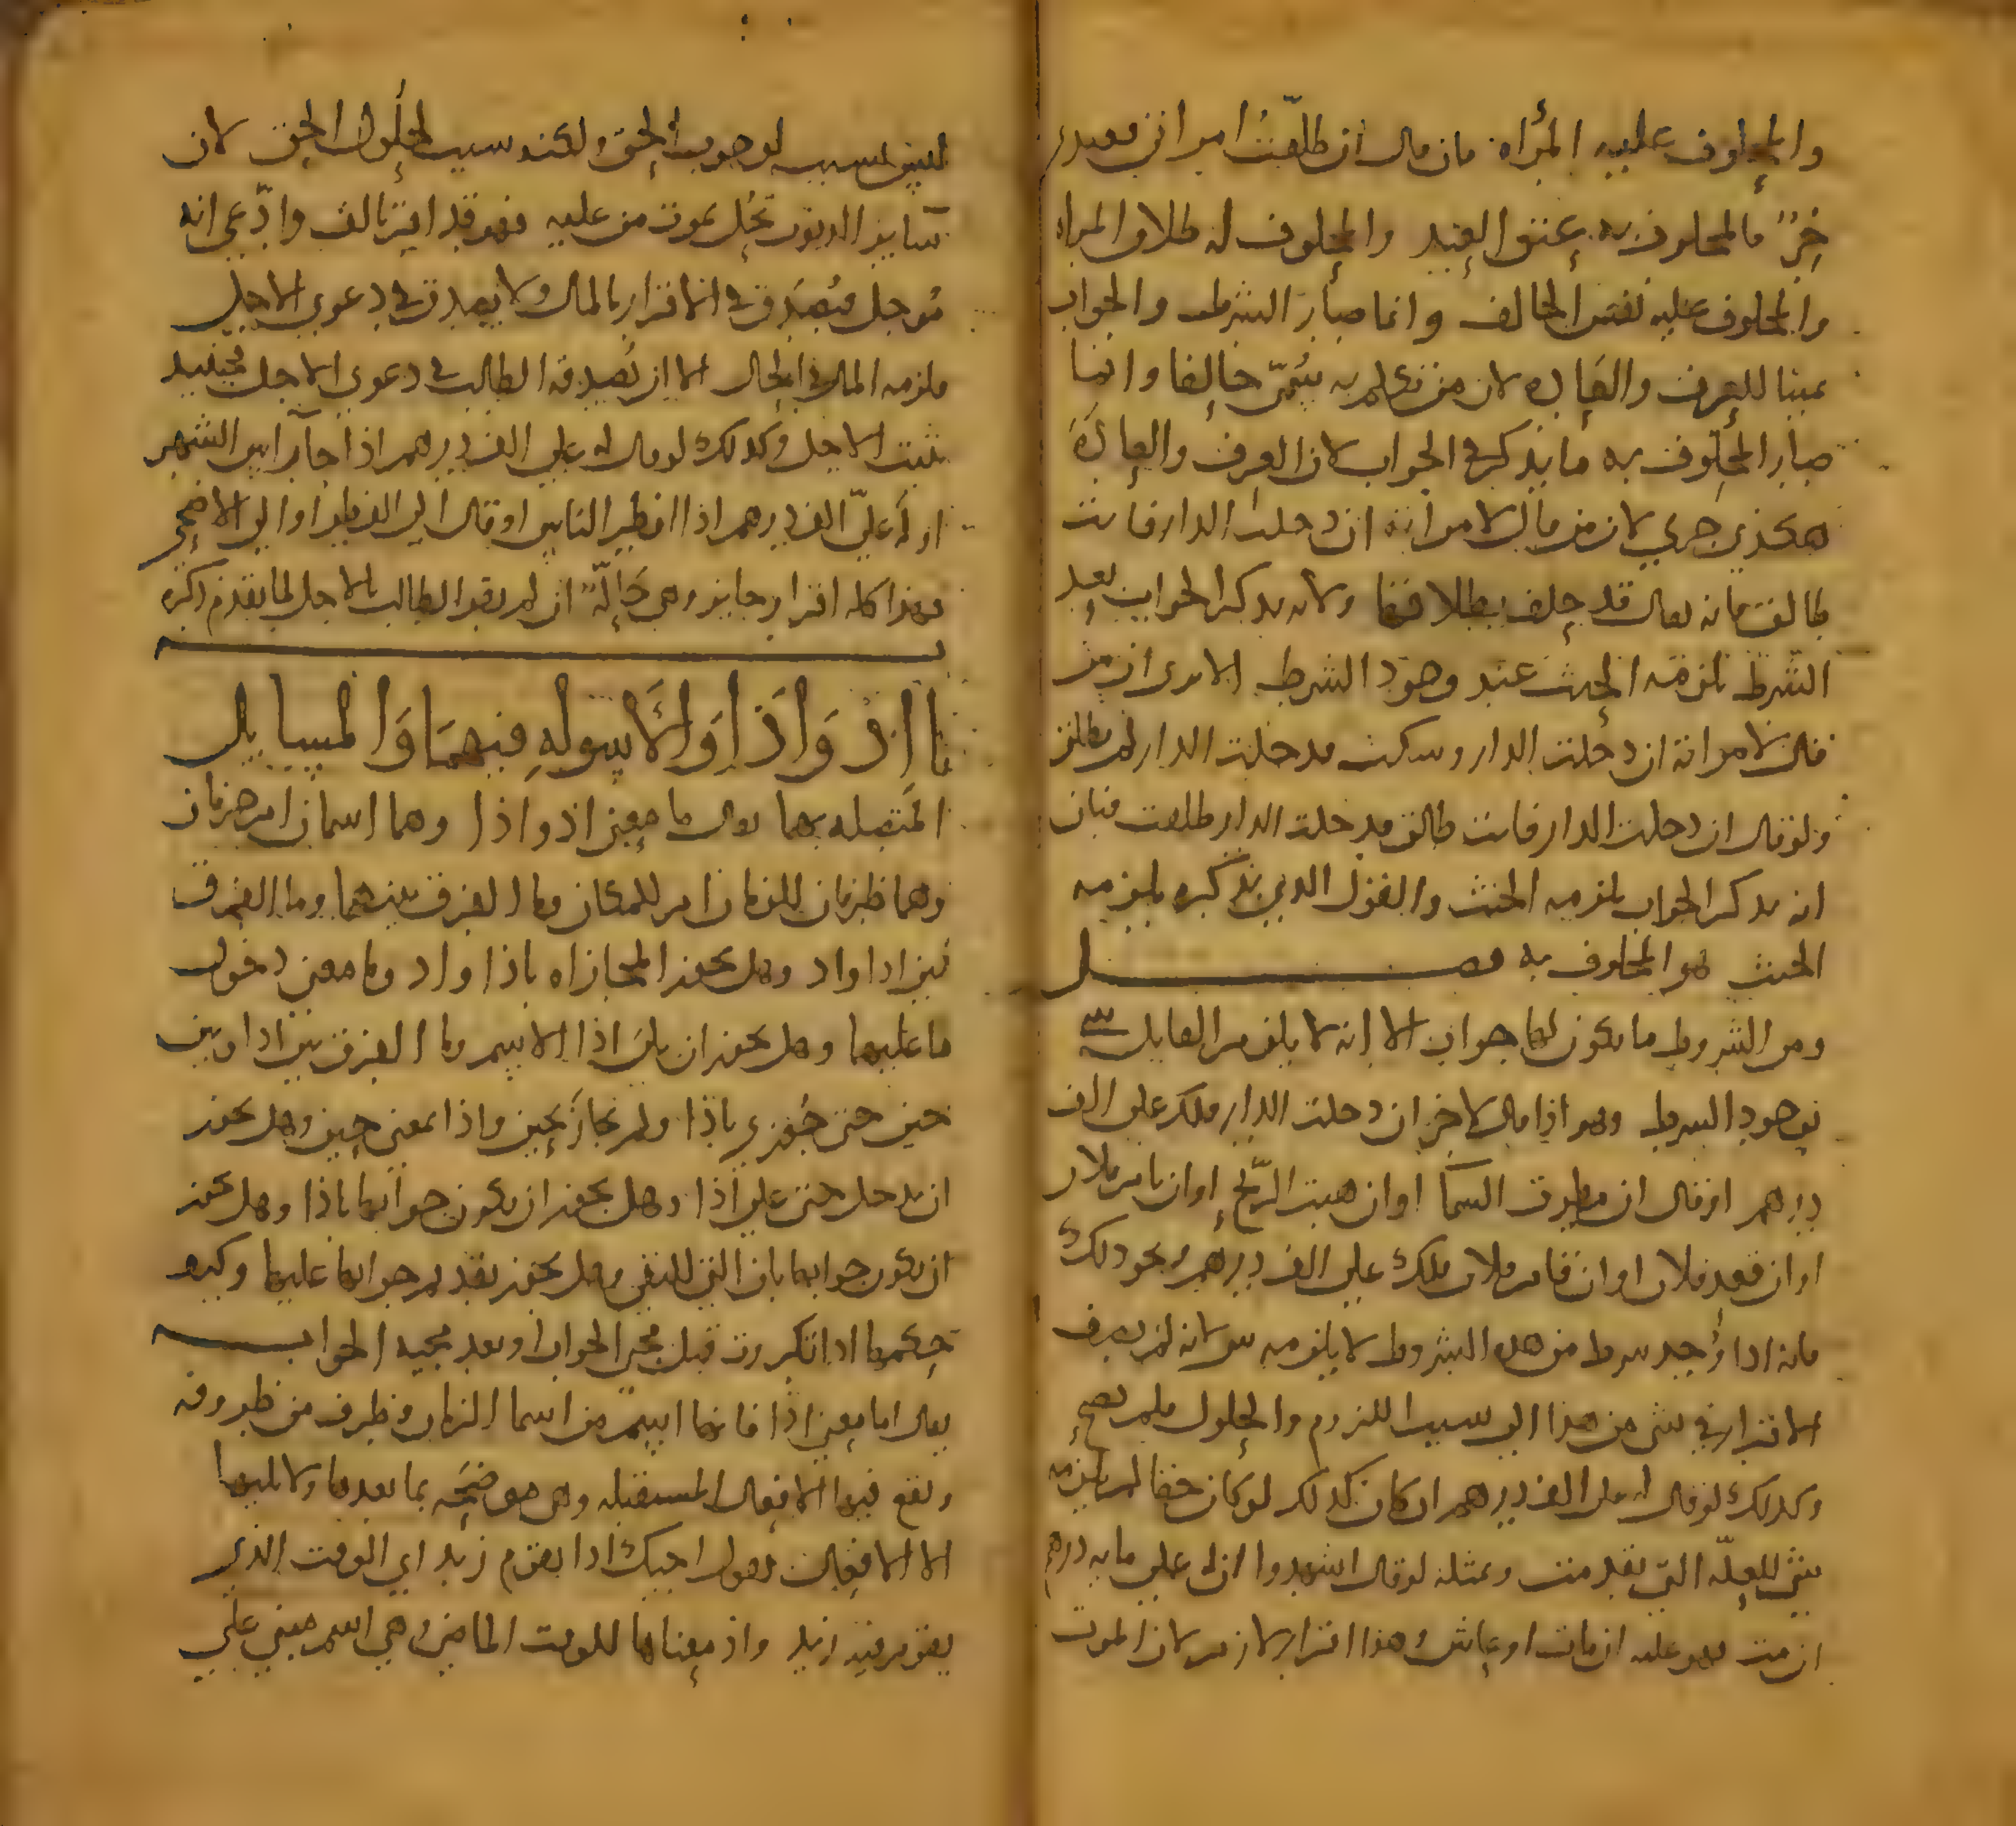 والمحلوف عليه المرأه فان قال ان طلقت امراتي فعبدي
حر فالمحلوف به عتق العبد والمحلوف له طلاق المراه
والمحلوف عليه نفس الحالف وانما صار الشرط والجواب
يمينا للعرف والعاده لان من تكلم به سمي حالفا وانما
صار المحلوف به ما يذكر في الجواب لان العرف والعادة
هكذي جري لان من قال لامراته ان دخلت الدار فانت
طالق فانه يقال قد حلف بطلاقها ولانه بذكر الجواب بعد
الشرط يلزمه الحنث عند وجود الشرط الا ترى ان من
قال لامراته ان دخلت الدار وسكت فدخلت الدار لم تطلق
ولو قال ان دخلت الدار فانت طالق فدخلت الدار طلقت فبان
انه بذكر الجواب يلزمه الحنث والقول الذي بذكره يلزمه
الحنث هو المحلوف به فصل
ومن الشروط ما يكون لها جواب الا انه لا يلزم القايل شي
بوجود الشرط وهو اذا قال لاخر ان دخلت الدار فلك علي الف
درهم او قال ان مطرت السما او ان هبت الريح او ان نام فلان
او ان قعد فلان او ان قام فلان فلك علي الف درهم ونحو ذلك
فانه اذا وجد شرط من هذه الشروط لا يلزمه شي لانه لم يضف
الاقرار في شي من هذا الى سبب اللزوم والحلول فلم يصح
وكذلك لو قال له علي الف درهم ان كان كذلك لو كان حقا لم يلزمه
شي للعلة التي تقدمت وبمثله لو قال اشهدوا ان له علي مايه درهم
ان مت فهو عليه ان مات او عاش وهذا اقرار لازم لان الموت
ليس بسبب لوجوب الحق ولكنه سبب لحلول الحق لان
ساير الديون تحل بموت من عليه فهو قد اقر بالف وادعي انه
موجل فيصدق في الاقرار بالمال ولا يصدق في دعوي الاجل
فلزمه المال في الحال الا ان يصدقه الطالب في دعوي الاجل فحينيذ
يثبت الاجل وكذلك لو قال له علي الف درهم اذا جا راس الشهر
او له علي الف درهم اذا افطر الناس او قال الى الفطر او الى الاضحي
فهذا كله اقرار جايز وهي حالة ان لم يقر الطالب بالاجل لما تقدم ذكره
باب اذ واذا والاسوله فيهما والمسايل
المتصله بهما يقال ما معني اذ واذا وهما اسمان ام حرفان
وهما ظرفان للزمان ام للمكان وما الفرق بينهما وما الفرق
بين اذا واذ وهل يجوز المجازاه باذا واذ وما معني دخول
ما عليهما وهل يجوز ان يلي اذا الاسم وما الفرق بين اذا وبين
حين حتى جوزي باذا ولم يجاز بحين واذا بمعني حين وهل يجوز
ان يدخل حتى علي اذا وهل يجوز ان يكون جوابها باذا وهل يجوز
ان يكون جوابها بان التي للنفي وهل يجوز تقديم جوابها عليها وكيف
حكمها اذا تكررت قبل مجي الجواب او بعد مجيه الجواب
يقال اما معني اذا فانها اسم من اسما الزمان وظرف من ظروفه
وتقع فيها الافعال المستقبله وهي موضحه بما بعدها ولا يليها
الا الافعال تقول اجيك اذا يقوم زيد اي الوقت الذي
يقوم فيه زيد واذ معناها للوقت الماضي وهي اسم مبني علي